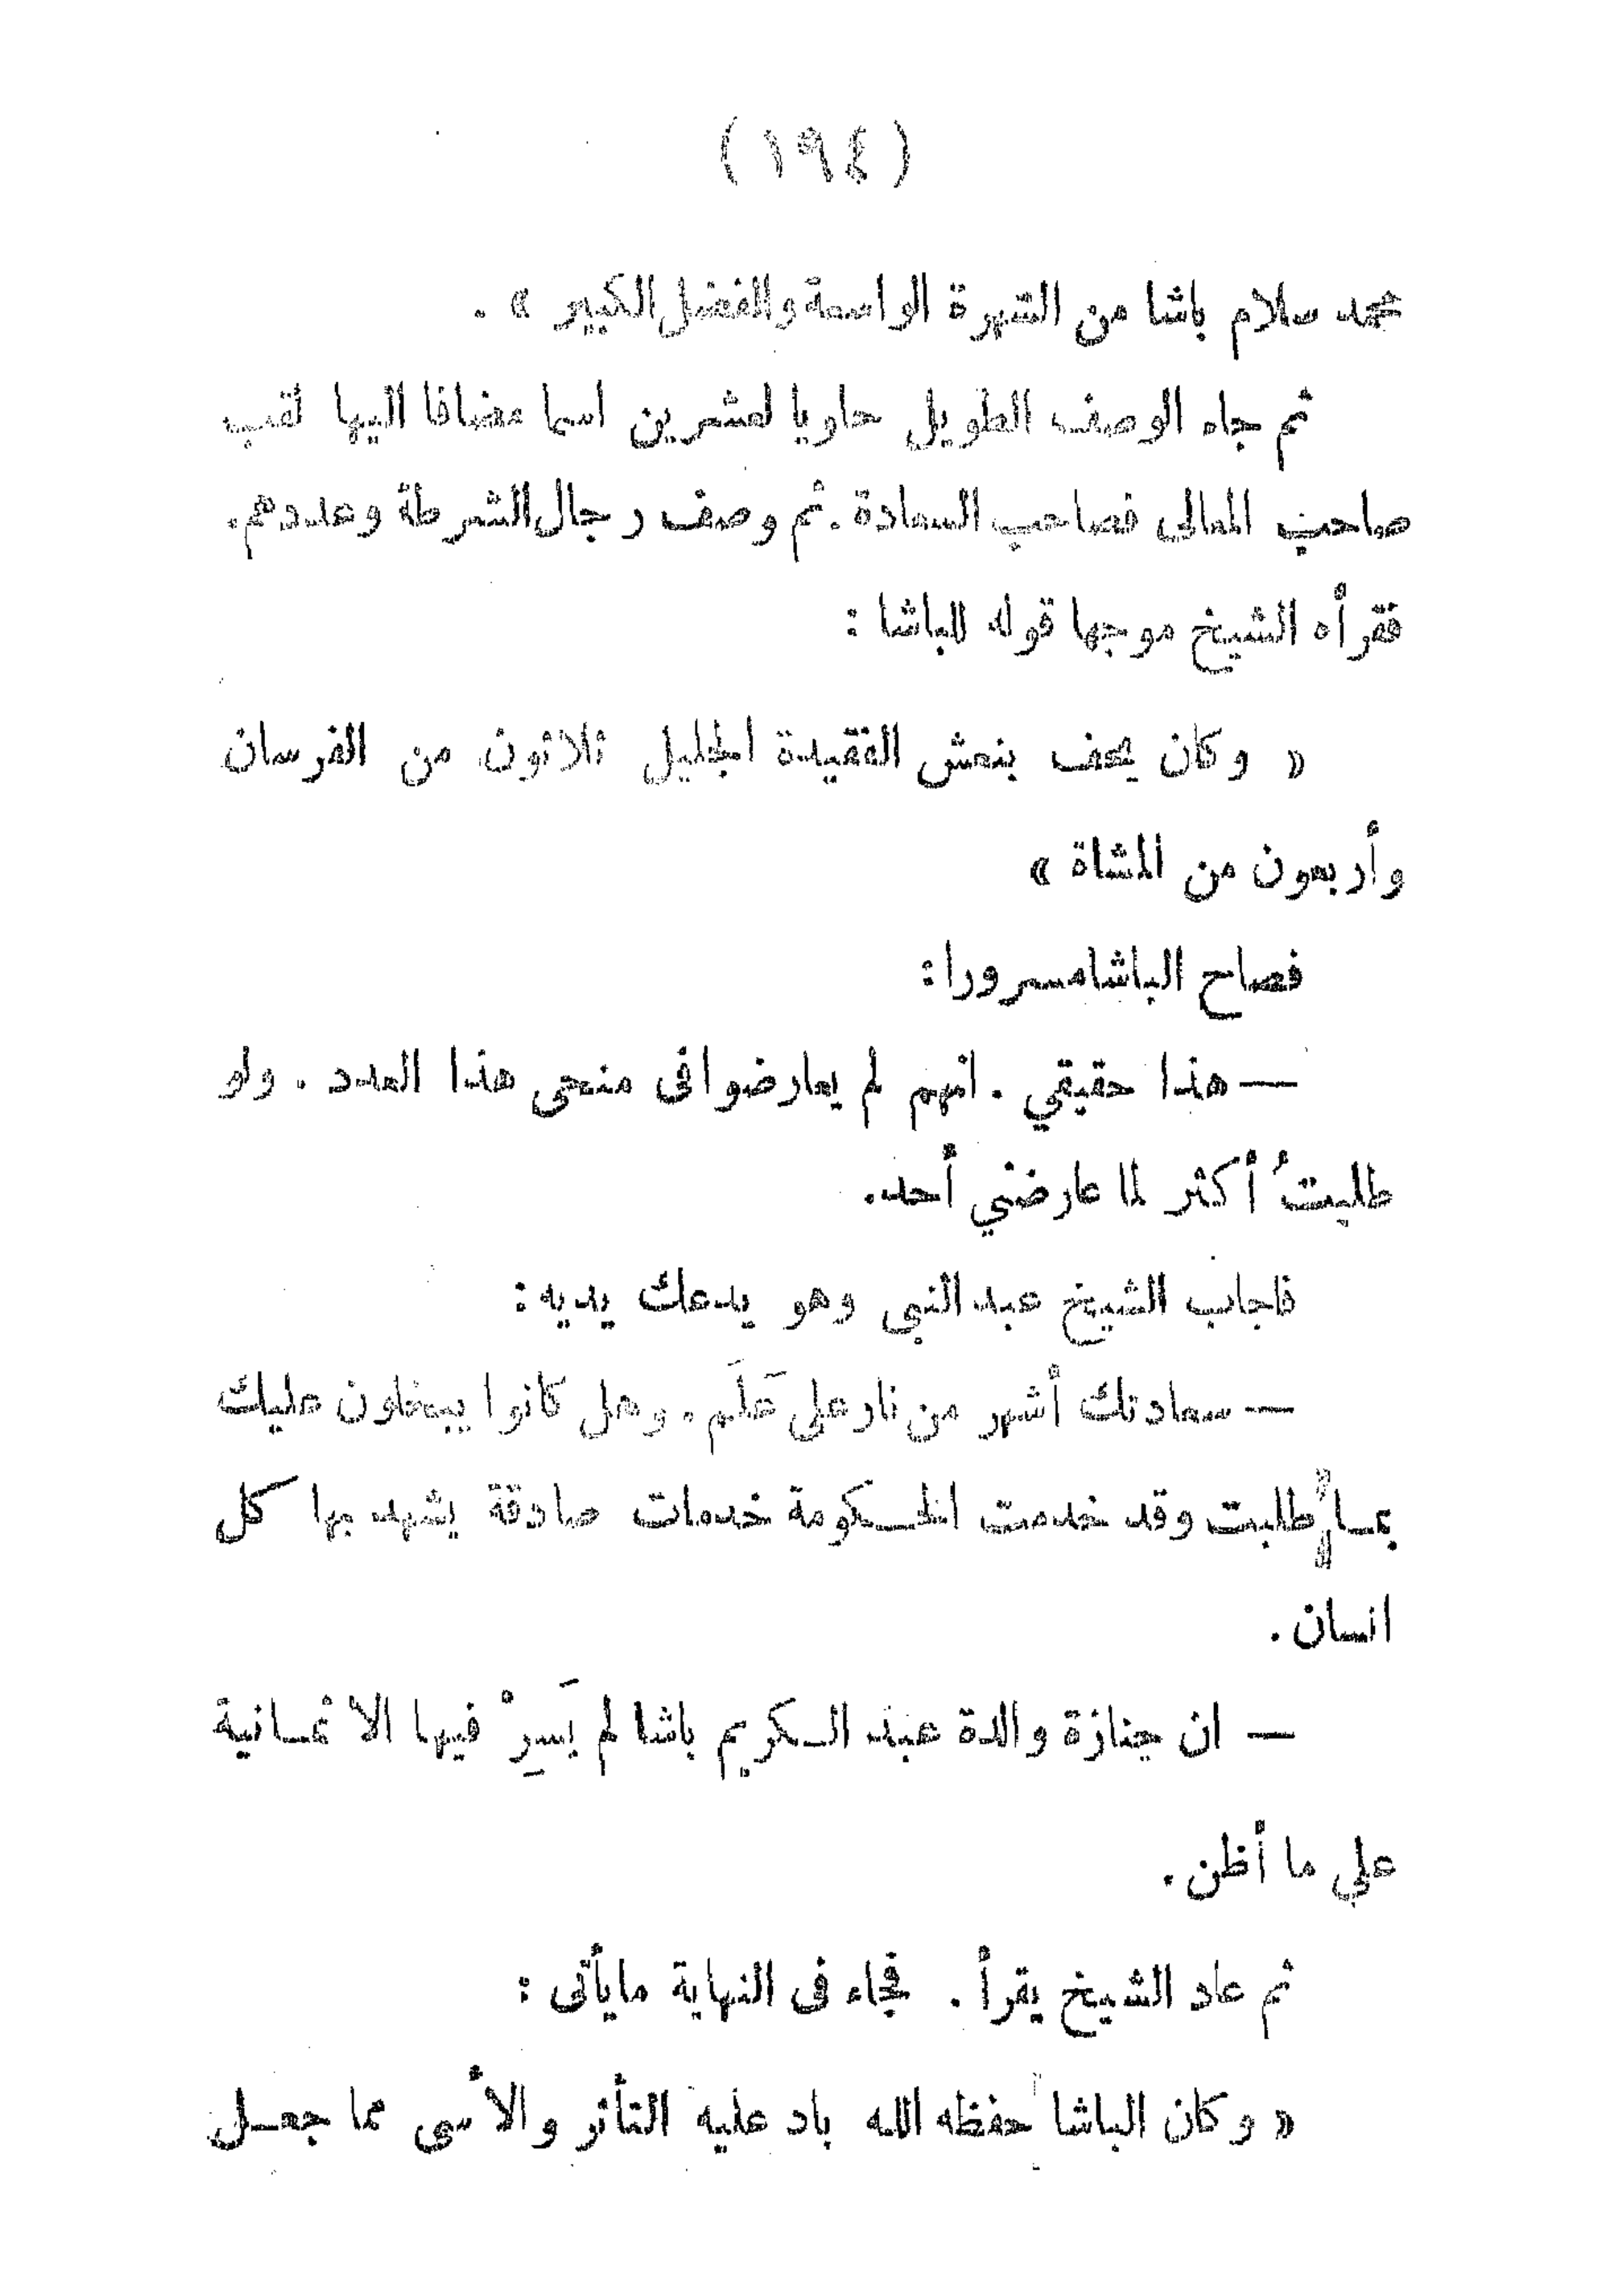 (١٩٤)
محمد سلام باشا من الشهرة الواسعة والفضل الكبير » .
ثم جاء الوصف الطويل حاويا لعشرين اسما مضافا اليها لقب
صاحب المعالى فصاحب السعادة . ثم وصف رجال الشرطة وعددهم .
فقرأه الشيخ موجها قوله للباشا :
« وكان يحف بنعش الفقيدة الجليل ثلاثون من الفرسان
وأربعون من المشاة »
فصاح الباشا مسرورا :
— هذا حقيقي . انهم لم يعارضوا فى منحى هذا العدد . ولو
طلبتُ أكثر لما عارضني أحد .
فاجاب الشيخ عبد النبى وهو يدعك يديه :
— سعادتك أشهر من نار على عَلَم . وهل كانوا يبخلون عليك
بما طلبت وقد خدمت الحكومة خدمات صادقة يشهد بها كل
انسان .
— ان جنازة والدة عبد الكريم باشا لم يَسِرْ فيها الا ثمانية
علي ما أظن .
ثم عاد الشيخ يقرأ . فجاء فى النهاية ما يأتى :
« وكان الباشا حفظه الله باد عليه التأثر والأسى مما جعل